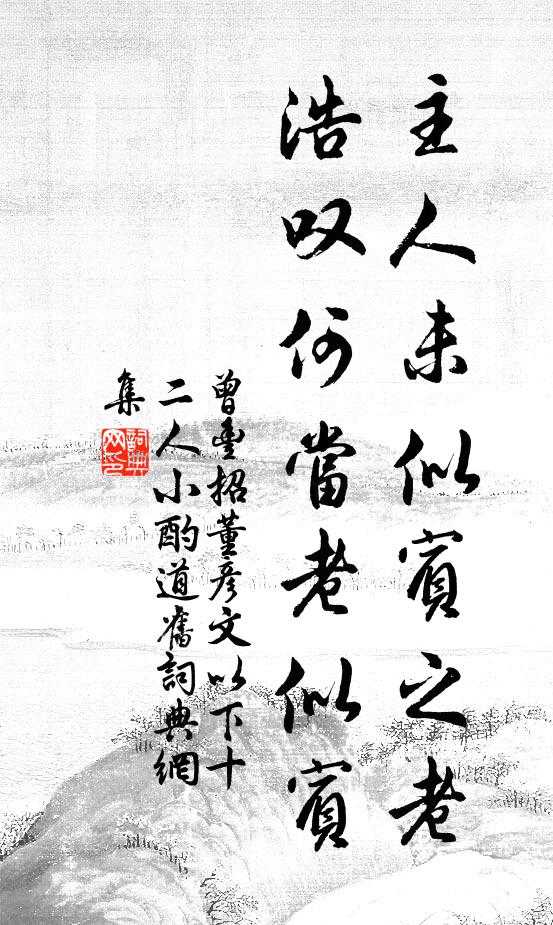 主人未似賓之老
浩叹何當老似賓
曾豊招董彦文以下十
二人小酌道舊詞典網
集
詞典
网印